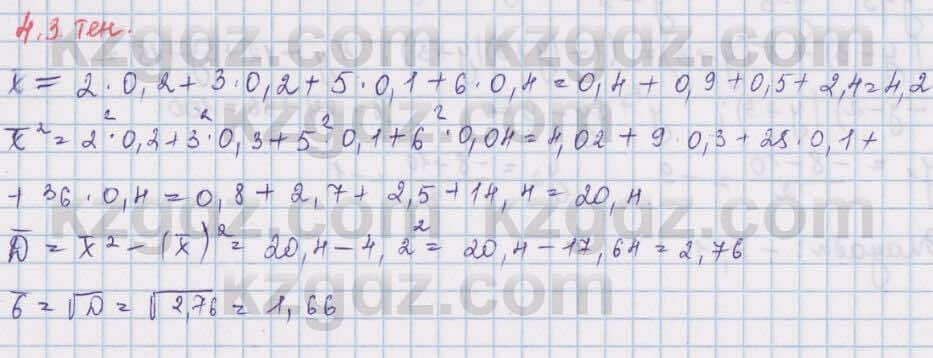 4.3. тен.
x̄ = 2·0,2+3·0,2+5·0,1+6·0,4=0,4+0,9+0,5+2,4=4,2
x̄² = 2²·0,2+3²·0,3+5²·0,1+6²·0,04=4,02+9·0,3+25·0,1+
+36·0,4=0,8+2,7+2,5+14,4=20,4.
D̄ = x̄² – (x̄)² = 20,4–4,2² = 20,4–17,64=2,76
б̄ = √D = √2,76 = 1,66
kzgdz.com
kzgdz.com
kzgdz.com